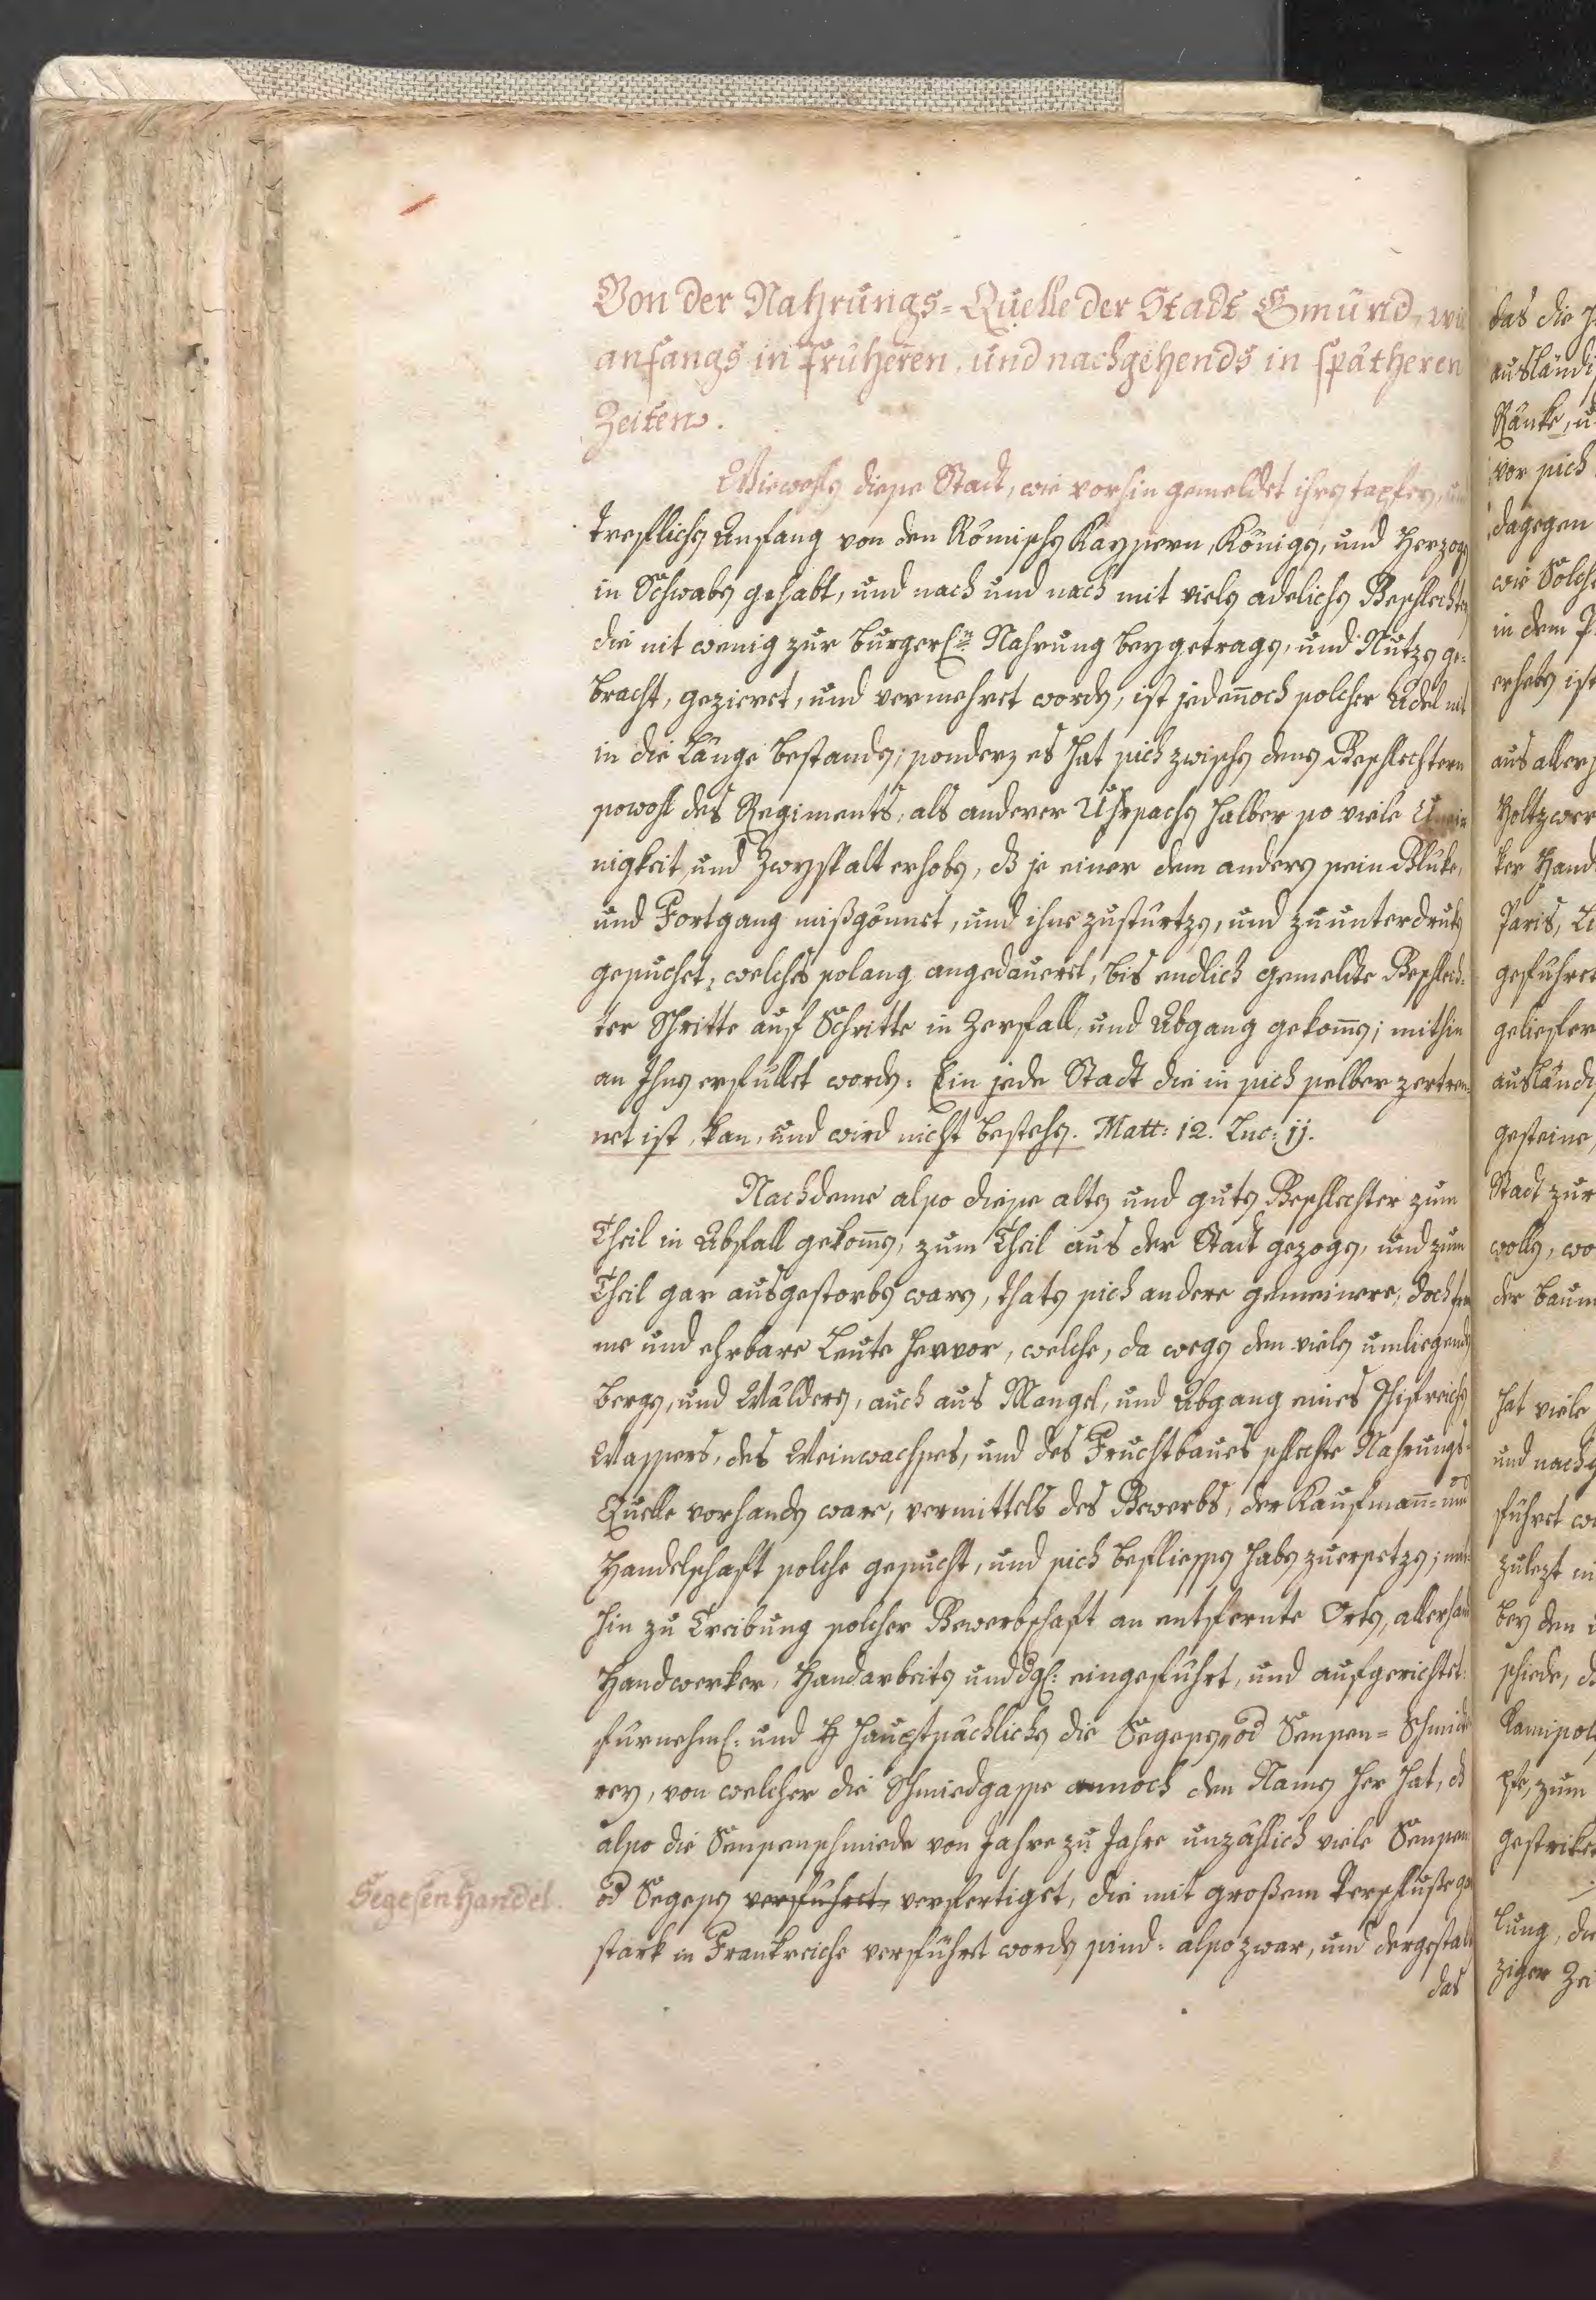 Von der Nahrungs-Quelle der Stadt Gmünd, wie
anfangs in früheren, und nachgehends in spätheren
Zeiten.
Wiewohl diese Stadt, wie vorhin gemeldet ihren tapferen, und
treflichen Anfang von den Römischen Kaysern, Königen, und Herzogen
in Schwaben gehabt, und nach und nach mit vielen adelichen Geschlechten
die nit wenig zur burgerl:n Nahrung beygetragen, und Nutzen ge-
bracht, gezieret, und vermehret worden, ist jedennoch solcher Adel nit
in die Länge bestanden; sondern es hat sich zwischen denen Geschlechtern
sowohl des Regiments, als anderer Uhrsachen halber so viele Unei-
nigkeit und Zwyspalt erhoben, dß je einer dem anderen sein Gluke,
und Fortgang mißgönnet, und ihne zusturtzen, und zuunterdruken
gesuchet, welches solang angedaueret, bis endlich gemeldte Geschlech-
ter Schritte auf Schritte in Zerfall, und Abgang gekomen; mithin
an Ihnen erfüllet worden: Ein jede Stadt die in sich selber zertren-
net ist, kan, und wird nicht bestehen. Matt: 12. Luc: 11.
Nachdeme also diese alten und guten Geschlechter zum
Theil in Abfall gekomen, zum Theil aus der Stadt gezogen, und zum
Theil gar ausgestorben waren, thaten sich andere gemeinere, doch from
me und ehrbare Leute hervor, welche, da wegen den vielen umliegenden
Bergen, und Wäldern, auch aus Mangel, und Abgang eines schifreichen
Wassers, des Weinwachses, und des Fruchtbaues schlechte Nahrungs-
Quelle vorhanden ware, vermittels des Gewerbs, der Kaufmann- und
Handelschaft solche gesucht, und sich beflissen haben zuersetzen; mit-
hin zu Treibung solcher Gewerbschaft an entfernte Orten, allerhand
Handwerker, Handarbeiten und dgl: eingeführt, und aufgerichtet:
fürnehml: und H hauptsächlichen die Segesen, od Sensen-Schmidt-
rey, von welcher die Schmiedgasse annoch den Namen her hat, dß
also die Sensenschmiede von Jahre zu Jahre unzählich viele Sensen
Segesen Handel.
od Segesen verführet, verfertiget, die mit großem Verschluße gar
stark in Frankreiche verführet worden sind: also zwar, und dergestalt
das